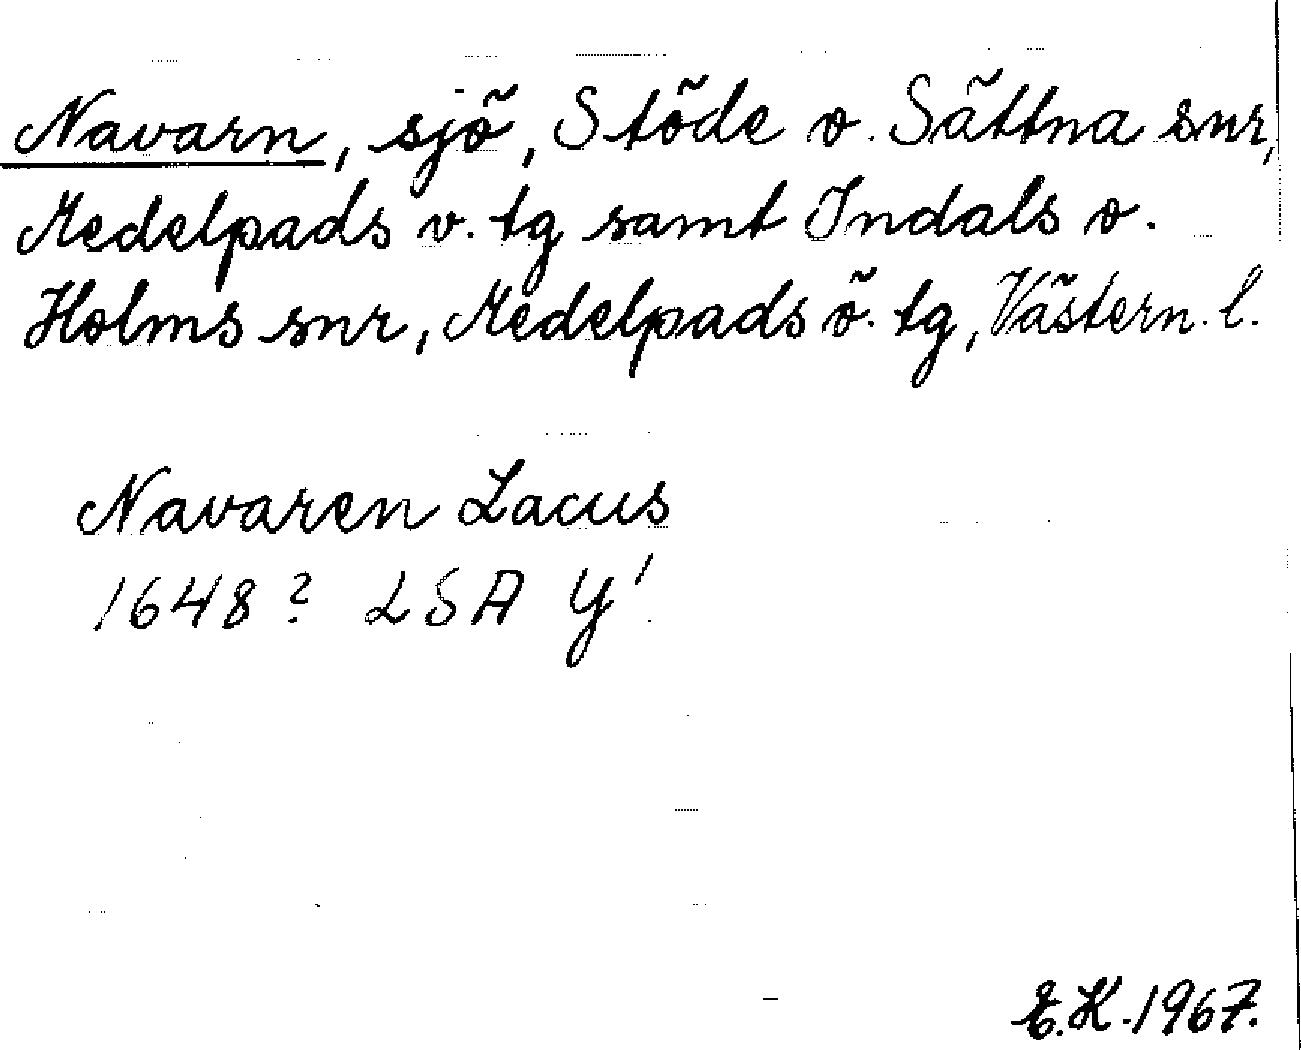 Navarn, sjö, Stöde o. Sättna snr,
Medelpads v. tg samt Indals o.
Holms snr, Medelpads ö. tg, Västern. l.
Navaren Lacus
1648? LSA Y'
E.K. 1967.